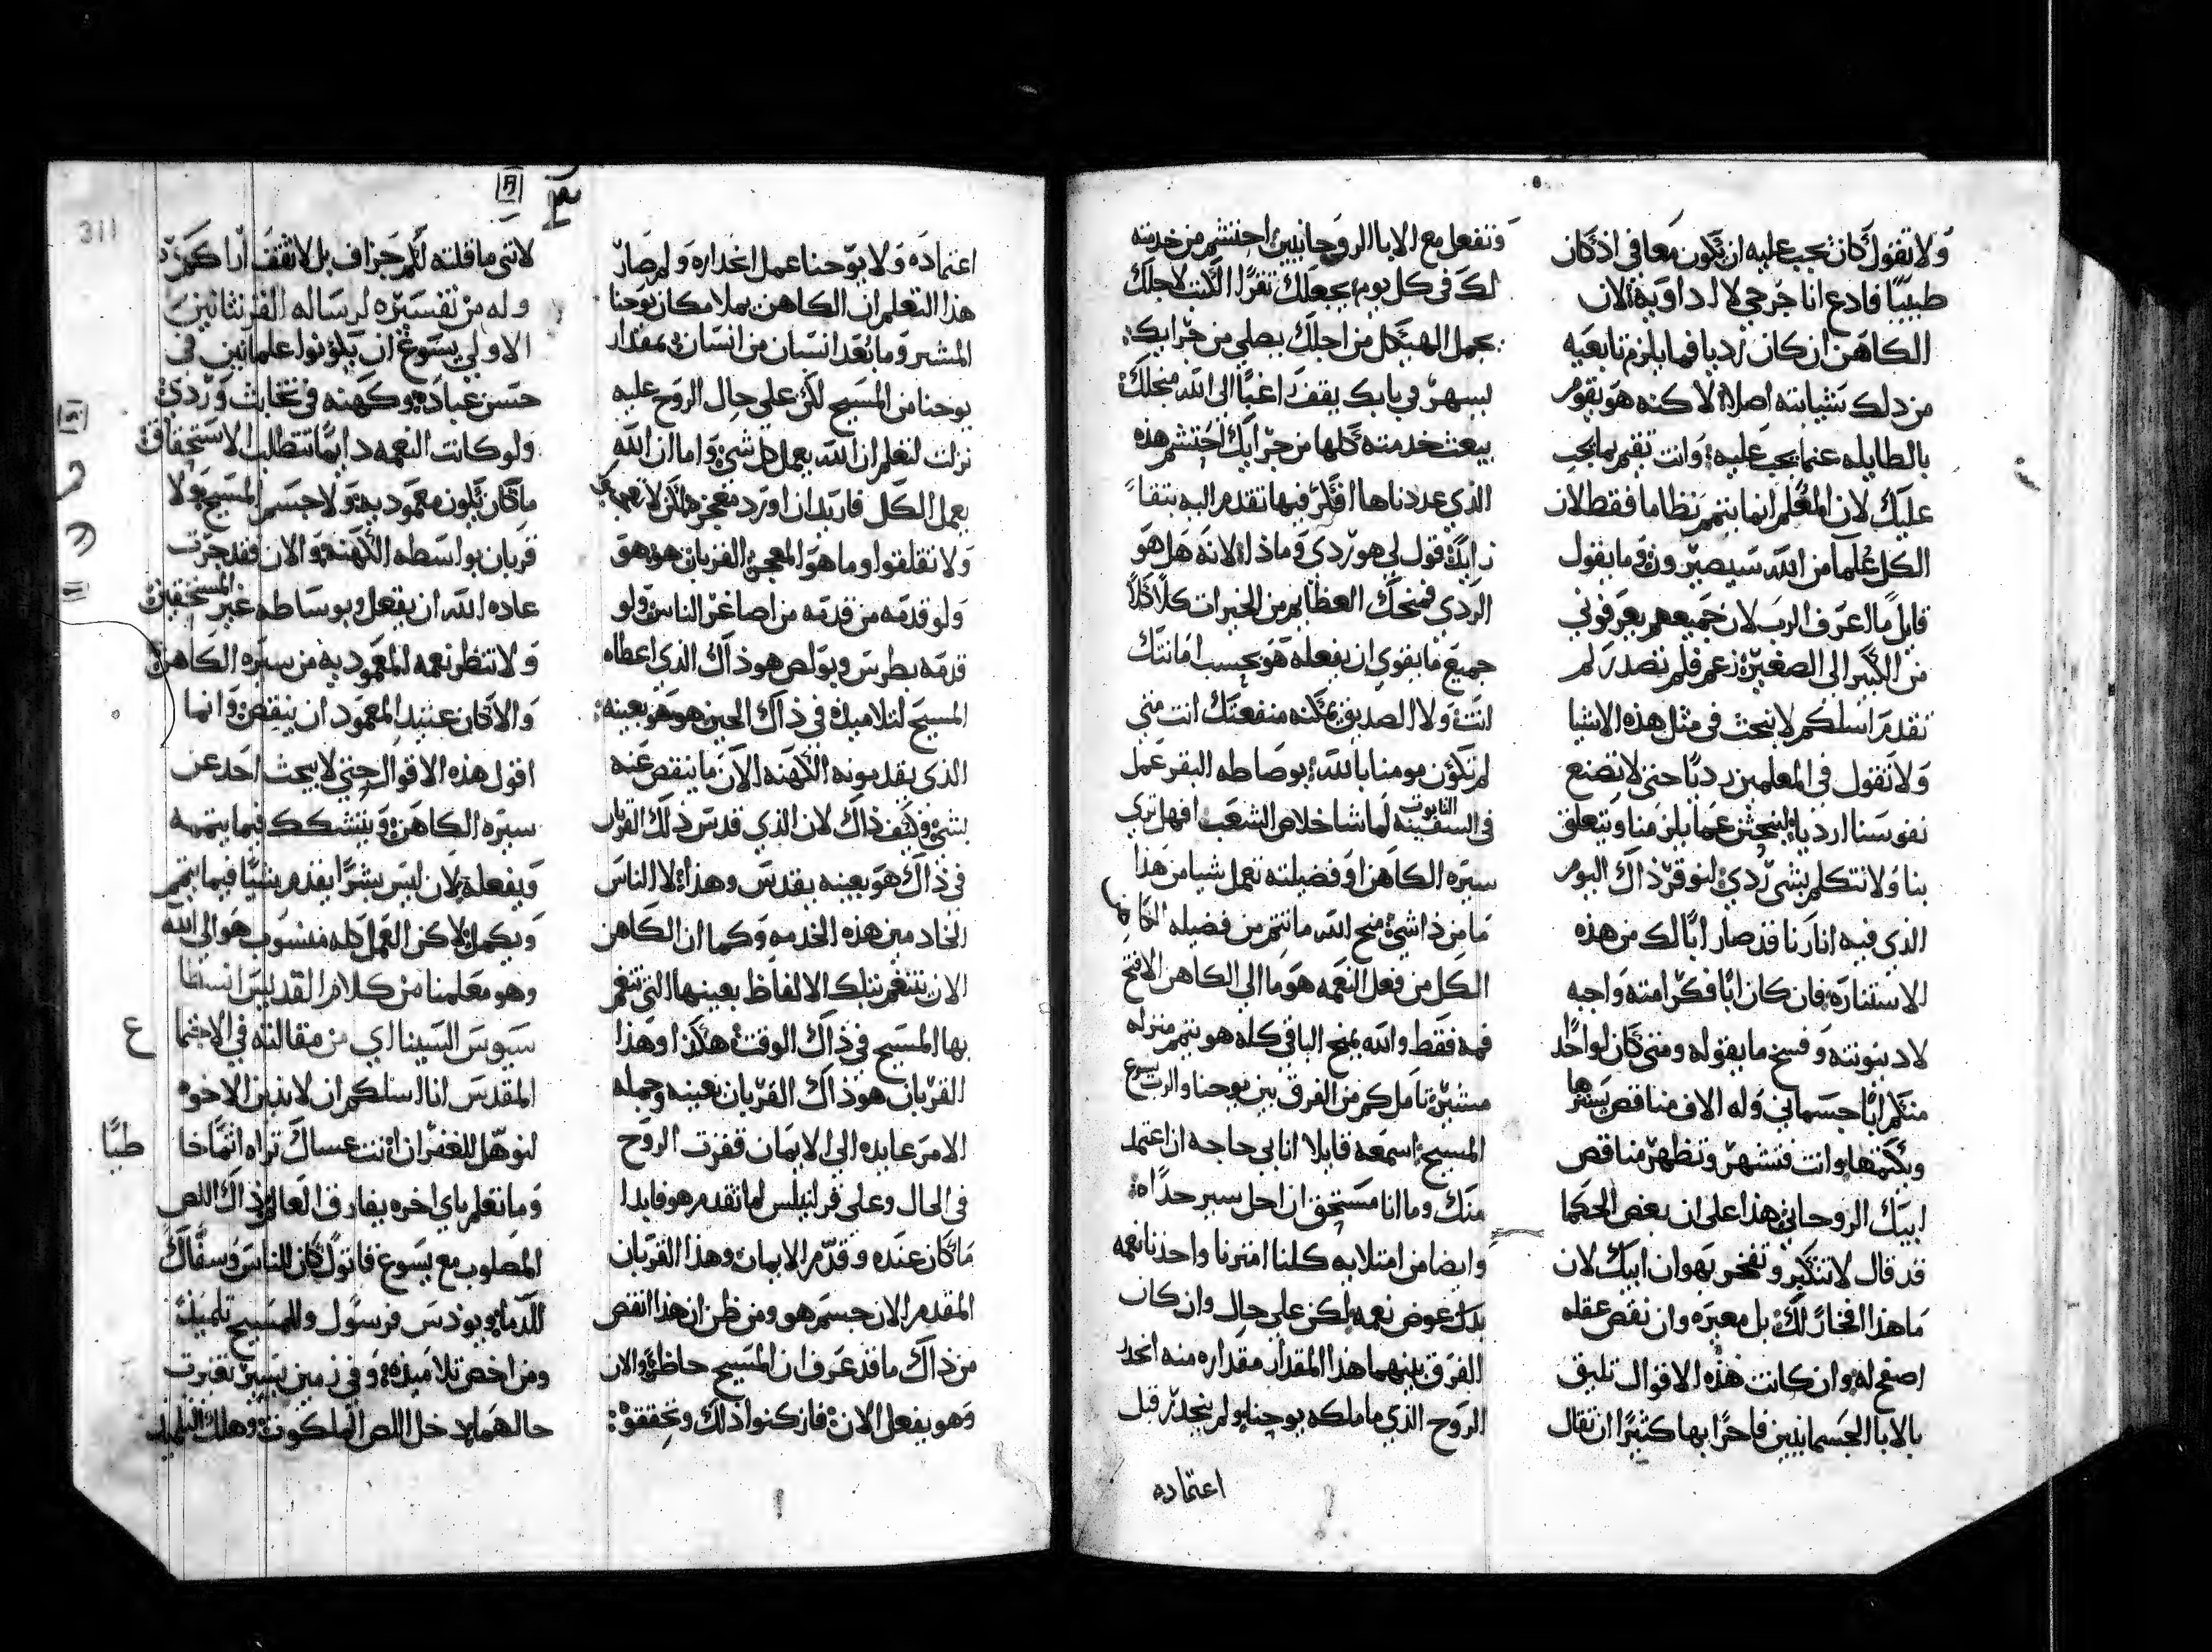 ولا تقول كان يجب عليه ان يكون معافي اذ كان
طبيبًا فادع انا جرحي لا اداويه لان
الكاهن ان كان رديا فما يلزم تابعيه
من ذلك بتشيانته اصلا لاكنه هو يقوم
بالطايله عنما يجب عليه وانت تقيم بما يجب
عليك لان المعلم انما يتمم نظاما فقط لان
الكل علما من الله سيصيرون في ما يقول
قايلًا اعرف الرب لان جميعهم يعرفوني
من الكبير الى الصغير زعم فلم نصدر لم
نقدم اسلكم لا نبحث في مثل هذه الاشيا
ولا تقول في المعلمين رديًا حتى لا نصنع
نفوسنا ارديا لنبحثن عما يلزمنا ويتعلق
بنا ولا نتكلم بشي ردي لنوقر ذاك اليوم
الذي فيه انارنا قد صار ابًا لك من هذه
الاستناره فان كان ابًا فكرامته واجبه
لا دينونته وفسخ ما يقوله ومتى كان لواحد
منكم ابًا جسماني وله الاف مناقص يسترها
ويكتمها وانت فتشهر وتظهر مناقص
ابيك الروحاني هذا على ان بعض الحكما
قد قال لا تتكبر وتفخر بهوان ابيك لان
ما هذا افتخارًا لك بل معيره وان نقص عقله
اصفح له وان كانت هذه الاقوال تليق
بالابا الجسمانيين فاحرًا بها كثيرًا ان تقال
وتفعل مع الابا الروحانيين احتشم من خدمته
لك في كل يوم يجعلك تقرا الكتب لاجلك
يجمل الهيكل من اجلك يصلي من جرايك
يسهر في بابك يقف اغبًا الى الله منجلك
يبعث خدمته كلها من جرايك احتشم هذه
الذي عددناها افكر فيها تقدم اليه بتقا
زايد قول لي هو ردي وماذا لانه هل هو
الردي فمنحك العظايم من الخيرات كلا كلا
جميع ما يقوي ان يفعله هو بحسب امانتك
انت ولا الصديق يمكنه منفعتك انت متى
لم تكون مومنا بالله بوصاطه البقر عمل
التابوت
في السفينه لما شا خلاص الشعب افهل تري
سيره الكاهن او فضيلته تعمل شيا من هذا
ما من ذا شي منح الله ما تتم من فضيله الكاهن
الكل من فعل النعمه هو ما الي الكاهن الا فتح
فمه فقط والله يمنح الباقي كله هو يتمم منزله
مستيره تاملكم من الفرق بين يوحنا والرب يسوع
المسيح اسمعه قايلا انا بي حاجه ان اعتمد
منك وما انا مستحق ان احل سير حداه
وايضا من امتلايه كلنا امترنا واخدنا نعمه
بدل عوض نعمه لكن على حال وان كان
الفرق بينهما هذا المقدار مقداره منه انحدر
الروح الذي ما ملكه يوحنا ولم ينحدر قبل
اعتماده
اعتماده ولا يوحنا عمل انحداره ولم صار
هذا التعلم ان الكاهن يملا مكان يوحنا
المبشر وما بعد انسان من انسان بمقدار
يوحنا من المسيح لكن على حال الروح عليه
نزلت لتعلم ان الله يعمل كل شي واما ان الله
يعمل الكل فاريد ان اورد معجزه لكن لا
ولا تقلقوا وما هو المعجز القربان هو هو
ولو قدمه من قدمه من اصاغر الناس ولو
قدمه بطرس وبولص هو ذاك الذي اعطاه
المسيح لتلاميذه في ذاك الحين هو هو بعينه
الذي يقدمونه الكهنه الان ما ينقص عنه
بشي وكيف ذاك لان الذي قدس ذلك القربان
في ذاك هو بعينه يقدس وهذا لا الناس
الخادمين هذه الخدمه وكما ان الكاهن
الان تتنغم بتلك الالفاظ بعينها التي تنغم
بها المسيح في ذاك الوقت هكذا وهذا
القربان هو ذاك القربان بعينه وجمله
الامر عابده الى الايمان قفزت الروح
في الحال وعلى قرنيليس لما تقدم هو فابدا
ما كان عنده وقدم الايمان وهذا القربان
المقدم الان جسم هو ومن ظن ان هذا انقص
من ذاك ما قد عرف ان المسيح حاظر والان
وهو يفعل الان فاركنوا ذلك وتحققوه
٣
311
لانني ما قلته لكم جزاف بل لاثقف اراكم
وله من تفسيره لرساله القرنثانيين
الاولي يسوغ ان يكونوا علمانيين في
حسن عباده وكهنه في تخابث وردي
ولو كانت النعمه دايمًا تتطلب الاستحقاق
ما كان يكون معموديه ولا جسم المسيح ولا
قربان بواسطه الكهنه والان فقد جرت
عاده الله ان يفعل وبوساطه غير المستحقين
ولا تنتظر نعمه المعموديه من سيره الكاهن
والا كان عتيد المعمود ان ينقص وانما
اقول هذه الاقوال حتى لا يبحث احد عن
سيره الكاهن ويتشكك فيما يتممه
ويفعله لان ليس بشرًا يقدم شيًا فيما يتمم
ويكمل لاكن العمل كله منسوب هو الي الله
وهو معلمنا من كلام القديس انسطا
سيوس السيناي من مقالته في الاجتماع
المقدس انا اسلكم ان لا ندين الاخوه
لنوهل للغفران انت عساك تراه اثمًا خاطبًا
وما تعلم باي اخره يفارق العالم ذاك اللص
المصلوب مع يسوع قاتولًا كان للناس وسفاك
للدما ويوذس فرسول وللمسيح تلميذ
ومن اخص تلاميذه وفي زمن يسير تغيرت
حالهما دخل اللص الملكوت وهلك التلميذ